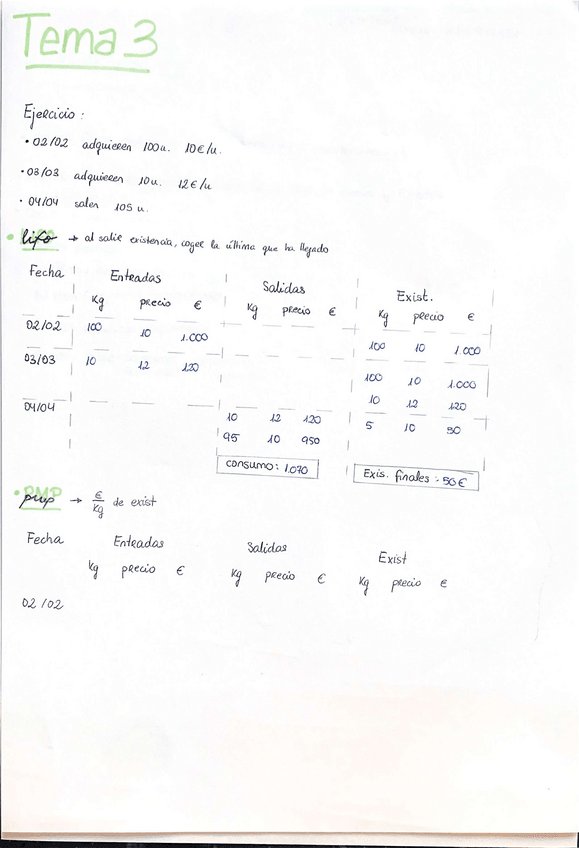 Tema 3
Ejercicio :
• 02/02 adquieren 100u. 10€/u.
• 03/03 adquieren 10u. 12€/u
• 04/04 salen 105 u.
• lifo → al salir existencia, coger la última que ha llegado
Fecha Entradas Salidas Exist.
Kg precio € Kg precio € Kg precio €
02/02 100 10 1.000 100 10 1.000
03/03 10 12 120 100 10 1.000
10 12 120
04/04 10 12 120 5 10 50
95 10 950
consumo: 1.070 Exis. finales : 50€
• PMP → €/Kg de exist
Fecha Entradas Salidas Exist
Kg precio € Kg precio € Kg precio €
02/02